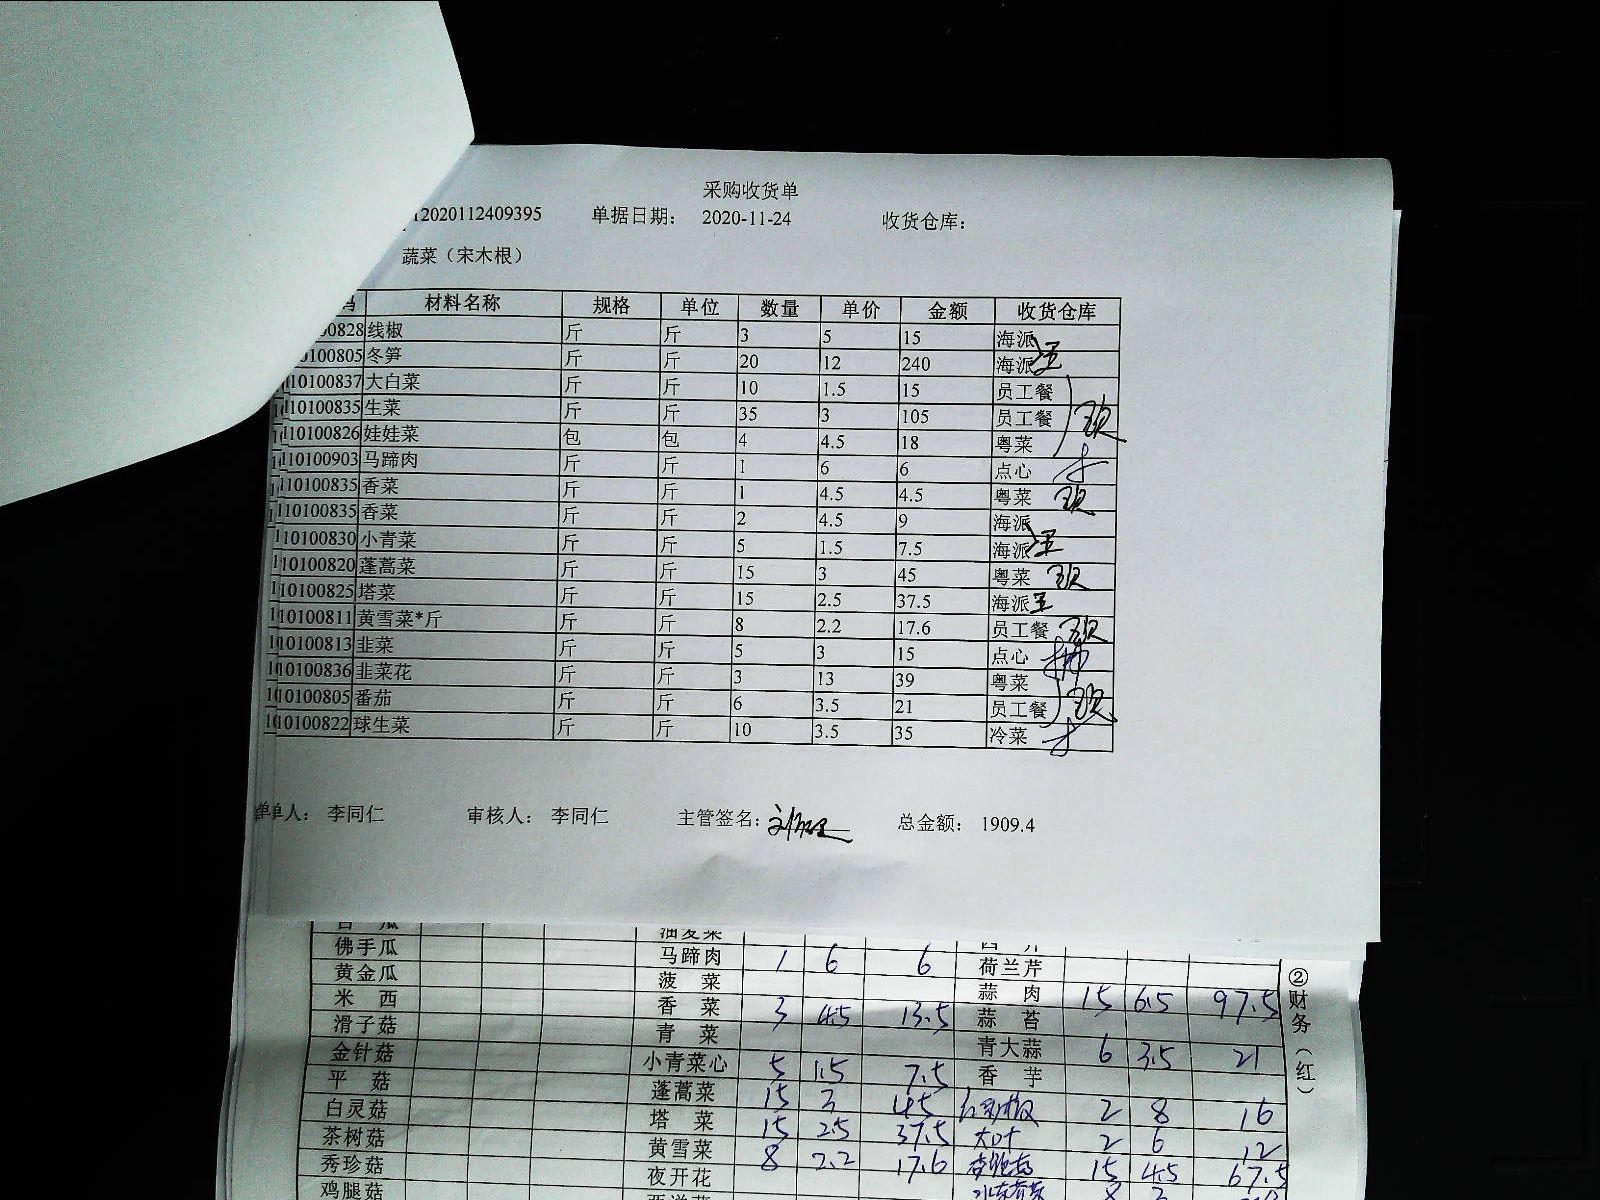 采购收货单
12020112409395 单据日期： 2020-11-24 收货仓库：
蔬菜（宋木根）
码 材料名称 规格 单位 数量 单价 金额 收货仓库
00828 线椒 斤 斤 3 5 15 海派
0100805 冬笋 斤 斤 20 12 240 海派 王
110100837 大白菜 斤 斤 10 1.5 15 员工餐
110100835 生菜 斤 斤 35 3 105 员工餐
110100826 娃娃菜 包 包 4 4.5 18 粤菜
110100903 马蹄肉 斤 斤 1 6 6 点心
110100835 香菜 斤 斤 1 4.5 4.5 粤菜
110100835 香菜 斤 斤 2 4.5 9 海派
110100830 小青菜 斤 斤 5 1.5 7.5 海派 王
110100820 蓬蒿菜 斤 斤 15 3 45 粤菜
110100825 塔菜 斤 斤 15 2.5 37.5 海派 王
110100811 黄雪菜*斤 斤 斤 8 2.2 17.6 员工餐
110100813 韭菜 斤 斤 5 3 15 点心
110100836 韭菜花 斤 斤 3 13 39 粤菜
110100805 番茄 斤 斤 6 3.5 21 员工餐
110100822 球生菜 斤 斤 10 3.5 35 冷菜
单人： 李同仁 审核人： 李同仁 主管签名： 总金额： 1909.4
佛手瓜 马蹄肉 1 6 6 荷兰芹
黄金瓜 菠菜 蒜肉 15 6.5 97.5
米西 香菜 3 4.5 13.5 蒜苔
滑子菇 青菜 青大蒜 6 3.5 21
金针菇 小青菜心 5 1.5 7.5 香芋
平菇 蓬蒿菜 15 3 45 2 8 16
白灵菇 塔菜 15 2.5 37.5 大叶 2 6 12
茶树菇 黄雪菜 8 2.2 17.6 15 4.5 67.5
秀珍菇 夜开花
鸡腿菇
②财务（红）